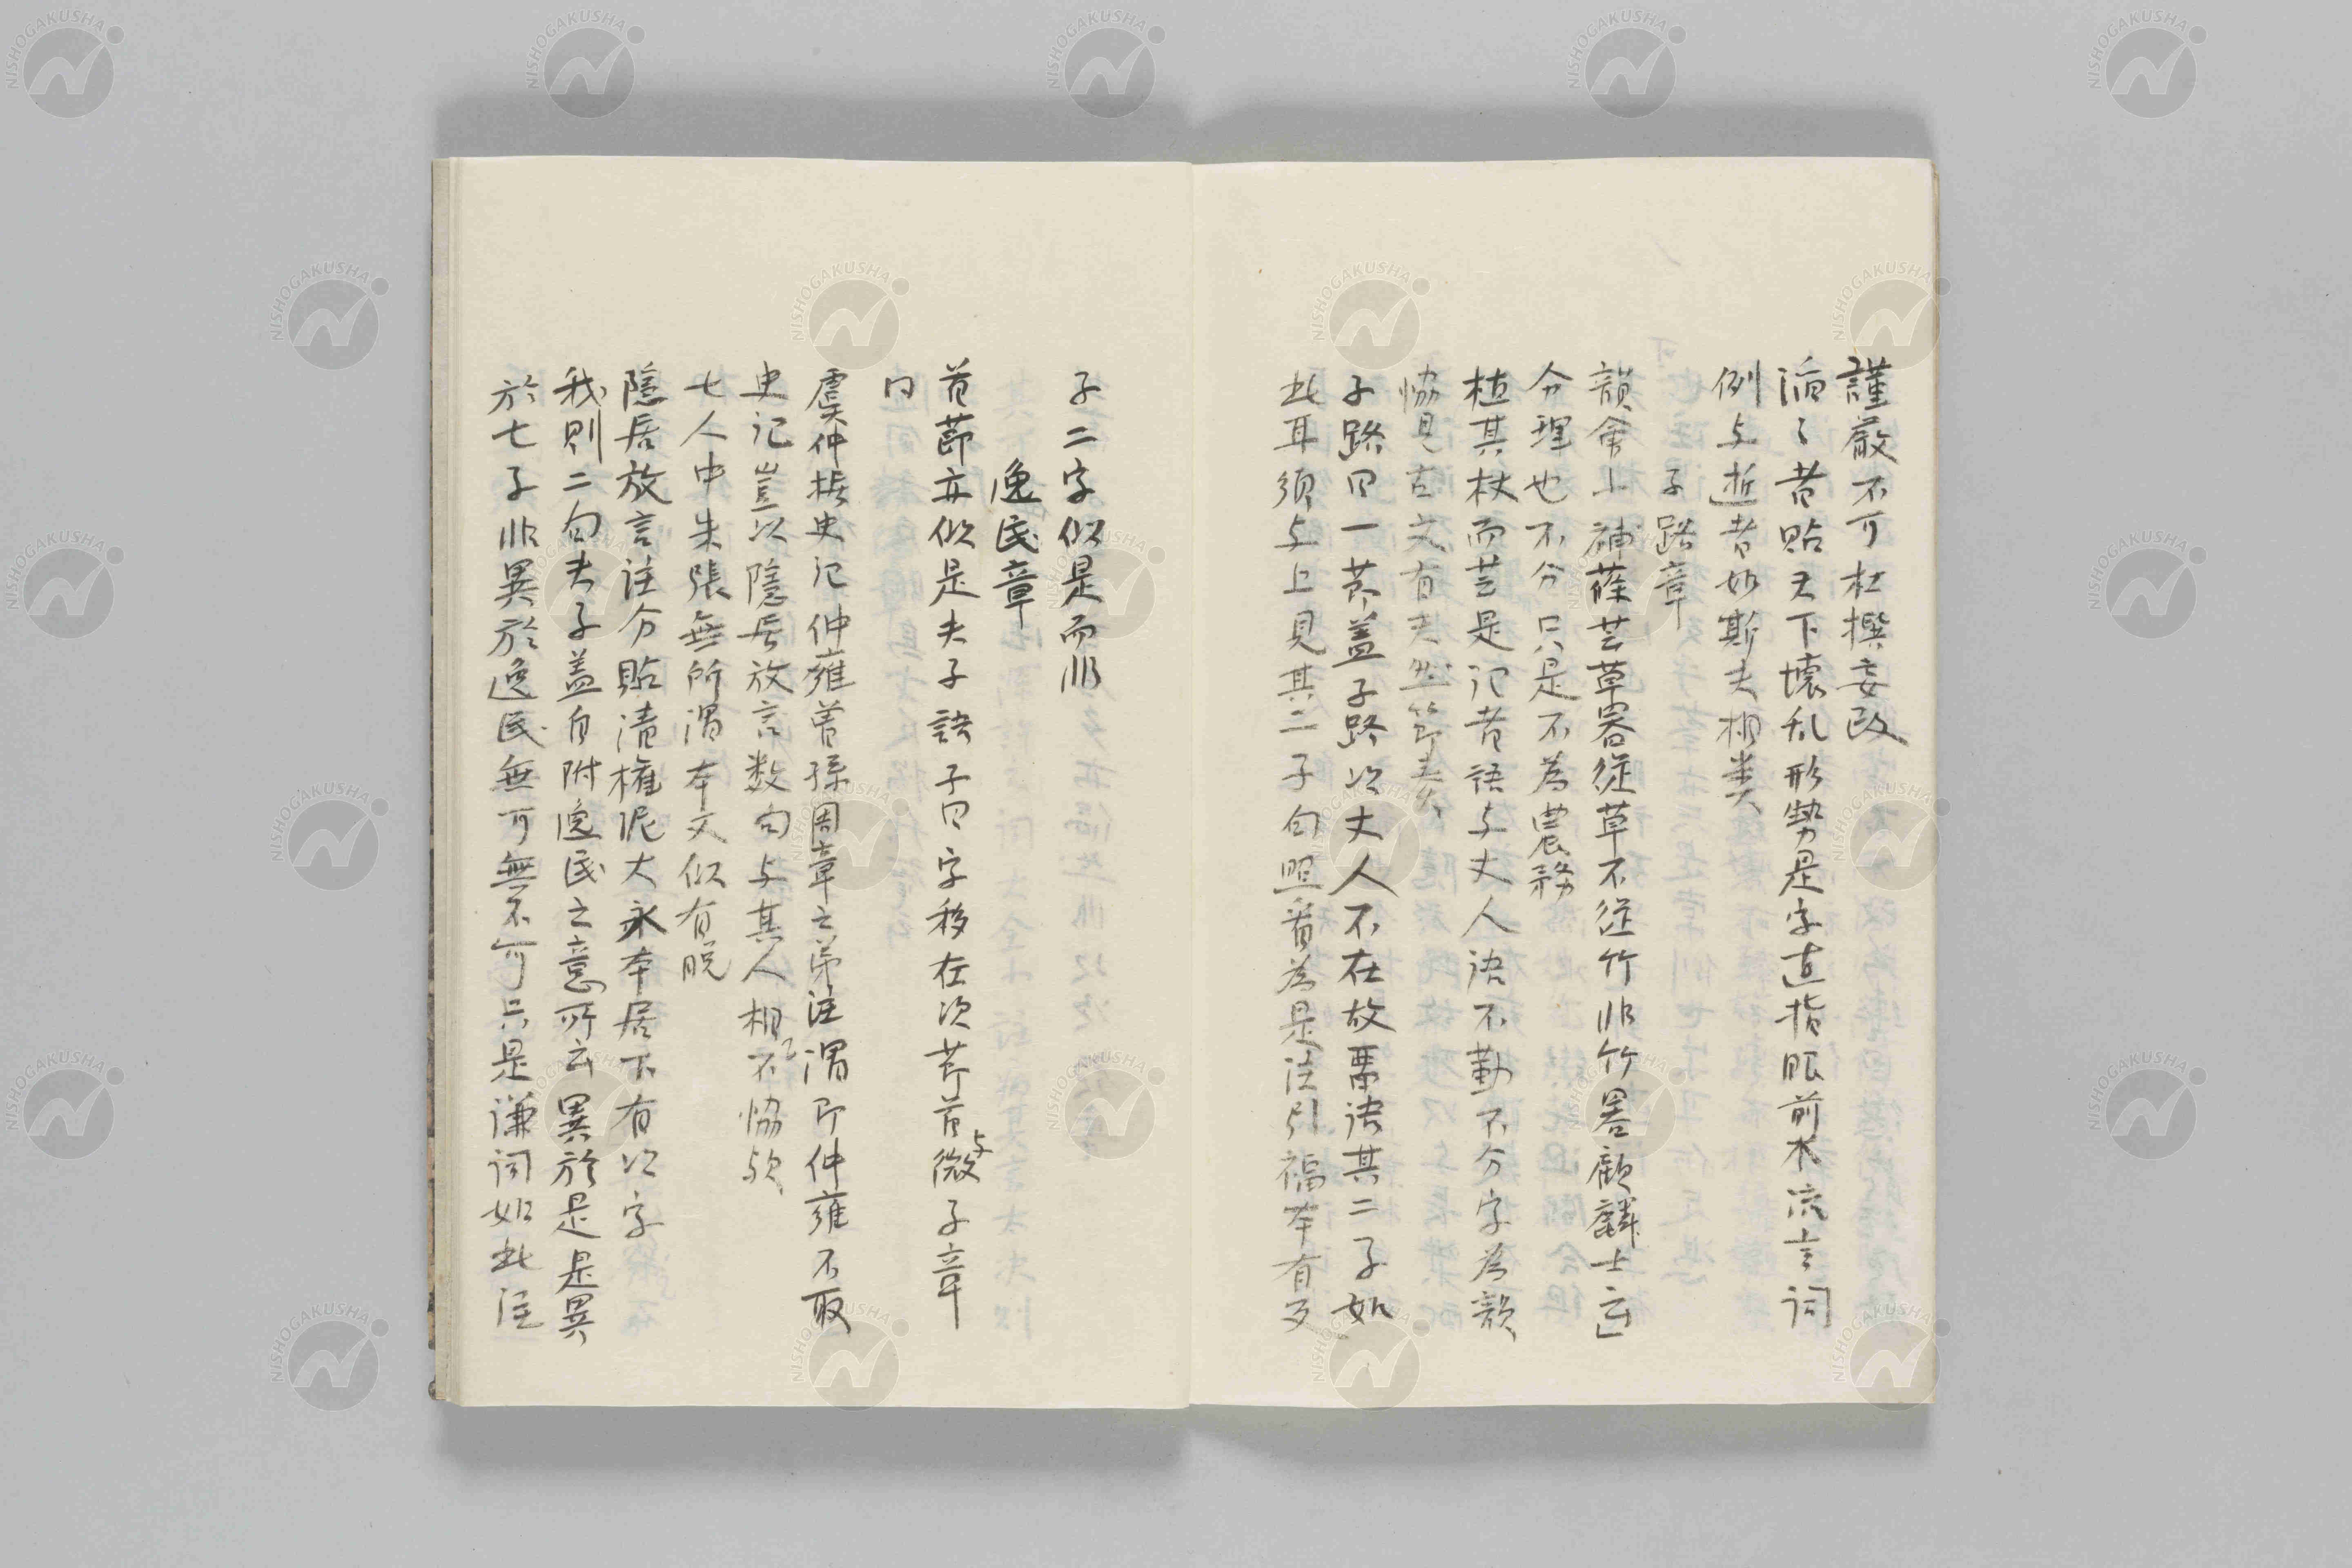 謹厳不可杜撰妄改
滔〻者貼天下壊乱形勢是字直指眼前水流言詞
例与逝者如斯夫相類
子路章
韻会小補蓧芸草器從草不從竹非竹器顧麟士云
分理也不分只是不為農務
植其杖而芸是記者語与丈人語不勤不分字為韻
恊見古文有夫然節奏
子路曰一節蓋子路以丈人不在故票語其二子如
此耳須与上見其二子句照看為是注引福本有又
子二字似是而非
逸民章
首節亦似是夫子語子曰字移在次節首与微子章
同
虞仲拠史記仲雍曽孫周章之弟注謂即仲雍不取
史記豈以隠居放言数句与其人相不恊欤
七人中朱張無所謂本文似有脱
隠居放言注分貼清権泥大永本居下有以字
我則二句夫子蓋自附逸民之意所云異於是是異
於七子非異於逸民無可無不可只是謙詞如此注
NISHOGAKUSHA